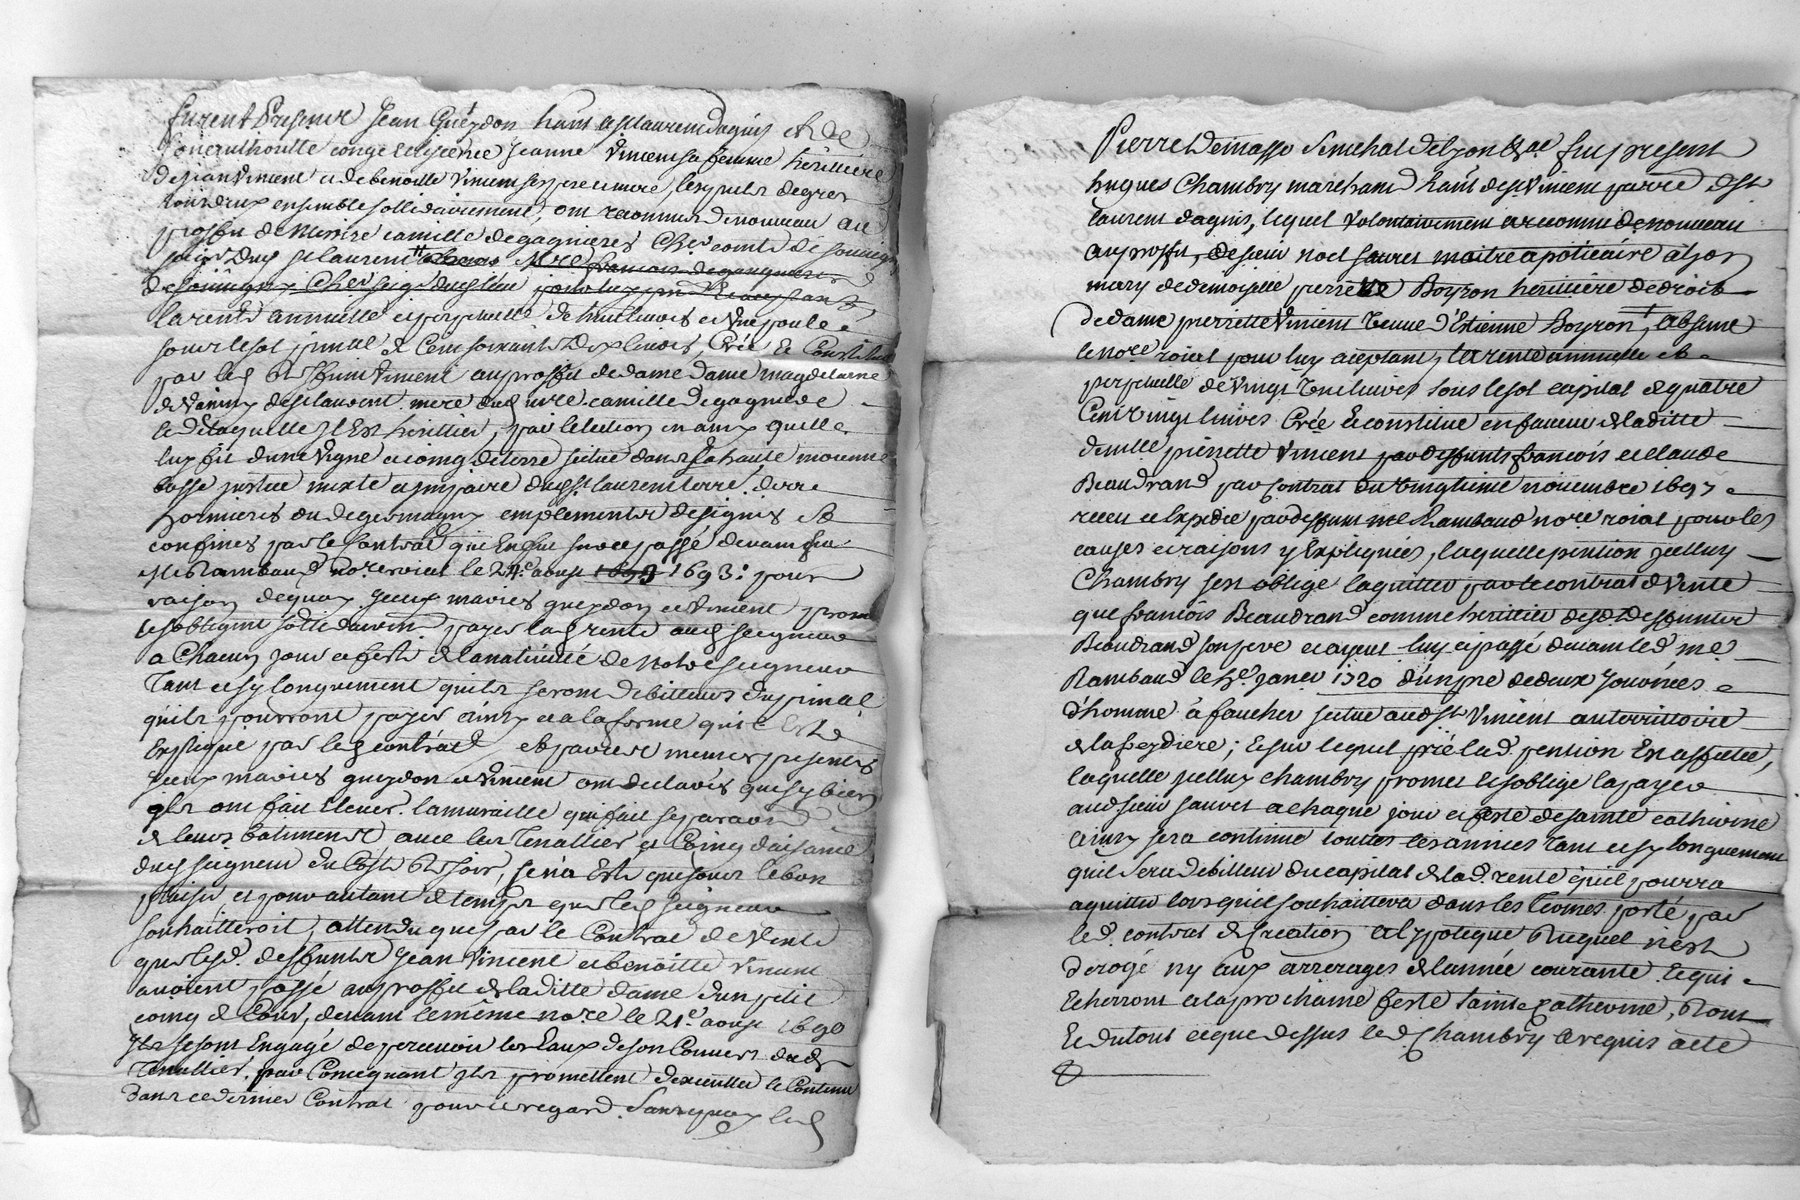 furent Presents Jean Gueydon habt a St laurent dagnis et de
son authoritte congé et licence Jeanne Vincent sa femme herittiere
de jean Vincent et de benoitte Vincent ses pere et mere, lesquels de gres
tous deux ensemble sollidairement, ont reconnus de nouveau au
proffit de Messire camille de gagnieres Cher comte de souvigny
seigr Dud St laurent Mre francois de gagnieres
de souvigny Cher seigr dud lieu pour luy
la rente annuelle et perpetuelle de huit livres et Une poule
sous le sol pnal de Cent soixante Dix livres, Créé et Constitué
par led deffunt Vincent au proffit de dame dame magdelaine
de St laurent mere dud mre camille de gagniere
de laquelle Il Est herittier,
luy fit d'une Vigne et coing de terre scitue dans la haute moienne
basse justice mixte et impaire dud St laurent terre
et
confines par le Contrat qui En fut sur ce passé devant feu
Me Rambaud Nore roial le 24e aoust 1693 1693: pour
raison dequoy yceux mariés gueydon et Vincent prome
et sobligent sollidairemt payer lad rente aud seigneur
a Chacun jour et feste de la nativité de Notre seigneur
Tant et sy longuement quils seront debitteurs du pinal
quils pourront payer ainsy et a la forme quil Est
Expliqué par led contrat, et par ces mesmes presentes
yceux mariés gueydon et Vincent ont declarés que sy bien
Ils ont fait Elever la muraille qui fait separaon
de leurs batiments avec les Tenallier et Coing daisance
dud seigneur du Costé de soir, se n'a Esté que sous le bon
plaisir et pour autant de temps que led seigneur
souhaitteroit, attendu que par le Contrat de Vente
que lesd. deffunts Jean Vincent et benoitte Vincent
avoient passé au proffit de laditte dame d'un petit
coing de Cour, devant le même nore le 21e aoust 1690
Ils se sont Engagé de recevoir les Eaux de son Couvert dud
Tenallier, par Consequant Ils promettent d'executter le Contenu
dans ce dernier Contrat pour ce regard. Sans quoy led
Pierre Demasso Senechal de Lyon &ae fut present
hugues Chambry marchand habt de St Vincent parroe de St
laurent dagnis, lequel volontairement a reconnu de nouveau
au proffit de sieur noel sauret maitre apoticaire a Lyon
mary de demoiselle pierrette Boyron herittiere de droit
de dame pierrette Vincent Veuve d'Estienne Boyron, absent
le nore roial pour luy aceptant, la rente annuelle et
perpetuelle de vingt Une livres sous le sol capital de quatre
Cent vingt livres Créé et constitué en faveur de laditte
demlle pierrette Vincent par deffunts francois et claude
Beaudrand par Contrat du vingtieme novembre 1697
receu et Expedié par deffunt me Rambaud nore roial pour les
causes et raisons y Expliquées, laquelle pention ycelluy
Chambry sest obligé laquitter par le contrat de Vente
que francois Beaudrand comme herittier desdt deffunts
Beaudrand son pere et ayeul luy a passé devant led. me
Rambaud le janer 1720 d'un pré de deux Journées
d'homme à faucher scitue aud St Vincent au territtoire
de la feydiere; et sur lequel pré lad. pention En affectée,
laquelle ycelluy chambry promet et soblige la payer
aud sieur sauret a chaque jour et feste de sainte catherine
ainsy sera continué touttes les années Tant et sy longuement
quil Sera debitteur du capital de lad. rente quil pourra
aquitter lors quil souhaittera dans les termes porté par
led. contrat de Creation, a l'ypoteque duquel n'est
derogé ny aux arrerages de l'année courante et qui
Echerront a la prochaine feste Sainte Catherine, Dont
Et du tout ce que dessus led. Chambry a requis acte